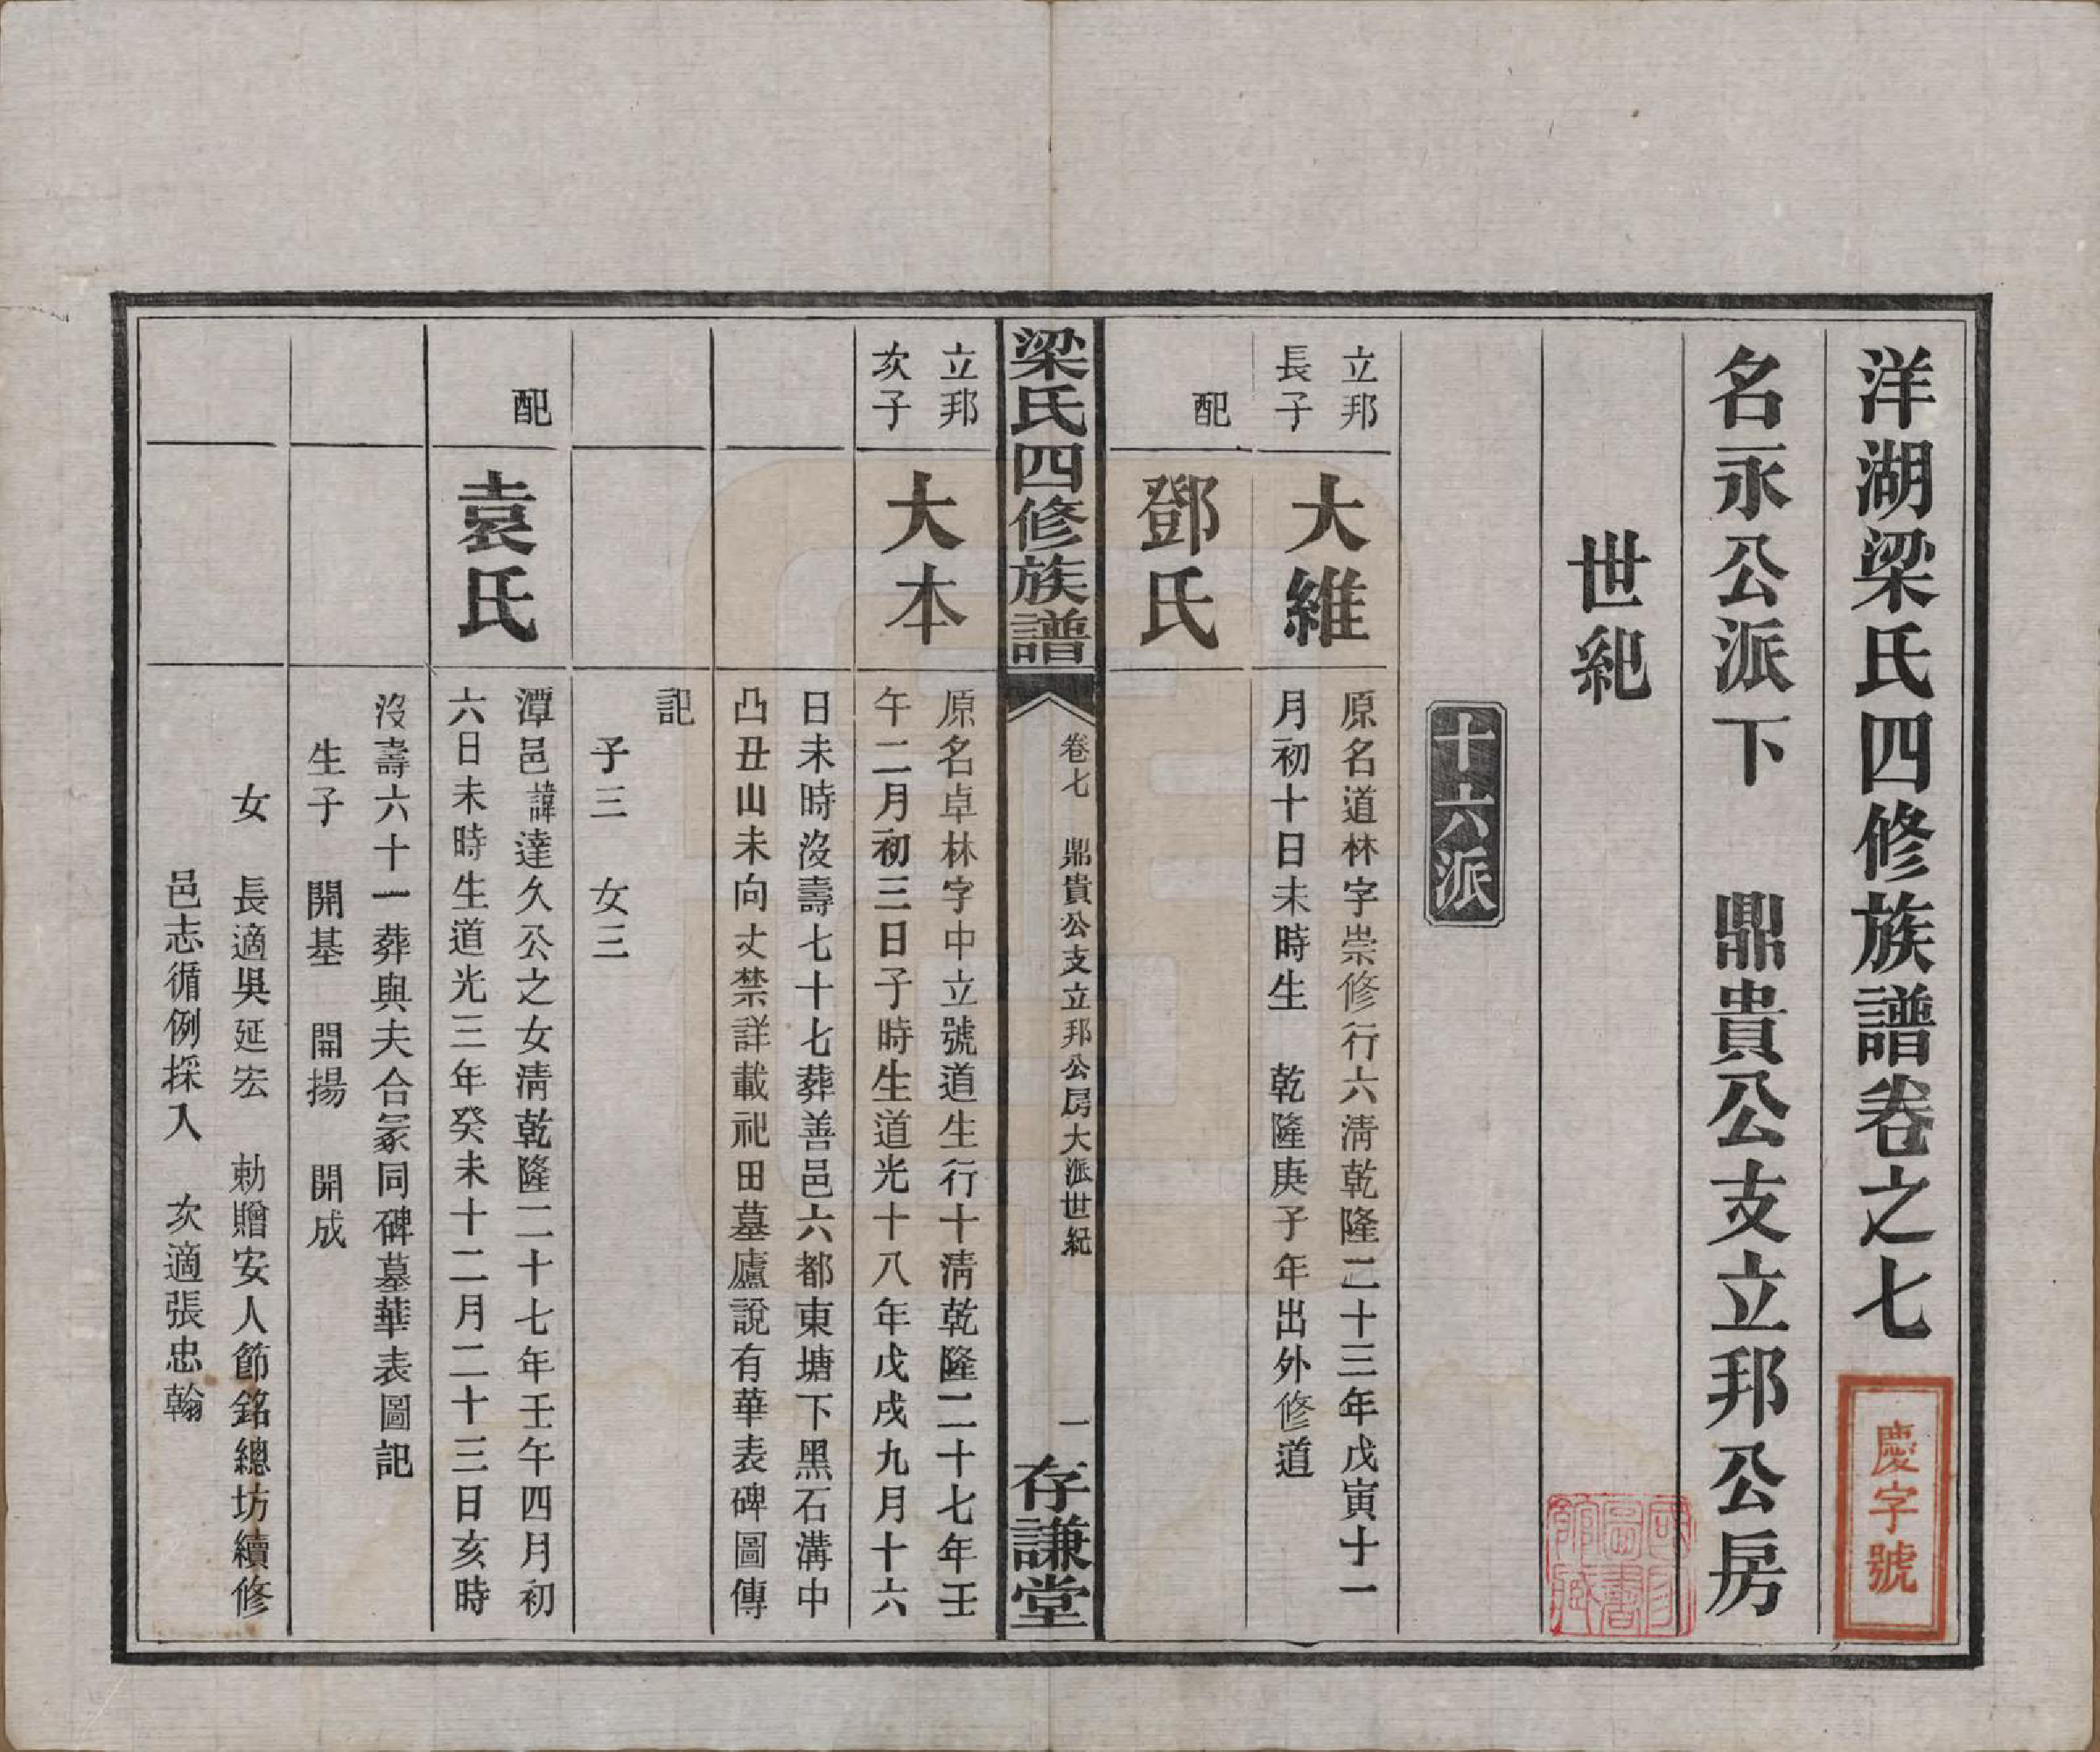 洋湖梁氏四修族譜卷之七
慶字號
名永公派下　鼎貴公支立邦公房
世紀
國家圖書館藏
十六派
立邦
長子
大維
原名道林字崇修行六淸乾隆二十三年戊寅十一
月初十日未時生　乾隆庚子年出外修道
配
鄧氏
梁氏四修族譜
卷七　鼎貴公支立邦公房大派世紀
一
存謙堂
立邦
次子
大本
原名卓林字中立號道生行十淸乾隆二十七年壬
午二月初三日子時生道光十八年戊戌九月十六
日未時沒壽七十七葬善邑六都東塘下黑石溝中
凸丑山未向丈禁詳載祀田墓廬說有華表碑圖傳
記
子三　女三
配
袁氏
潭邑諱達久公之女淸乾隆二十七年壬午四月初
六日未時生道光三年癸未十二月二十三日亥時
沒壽六十一葬與夫合冢同碑墓華表圖記
生子　開基　開揚　開成
女　長適吳延宏　勅贈安人節銘總坊續修
邑志循例採入　次適張忠翰